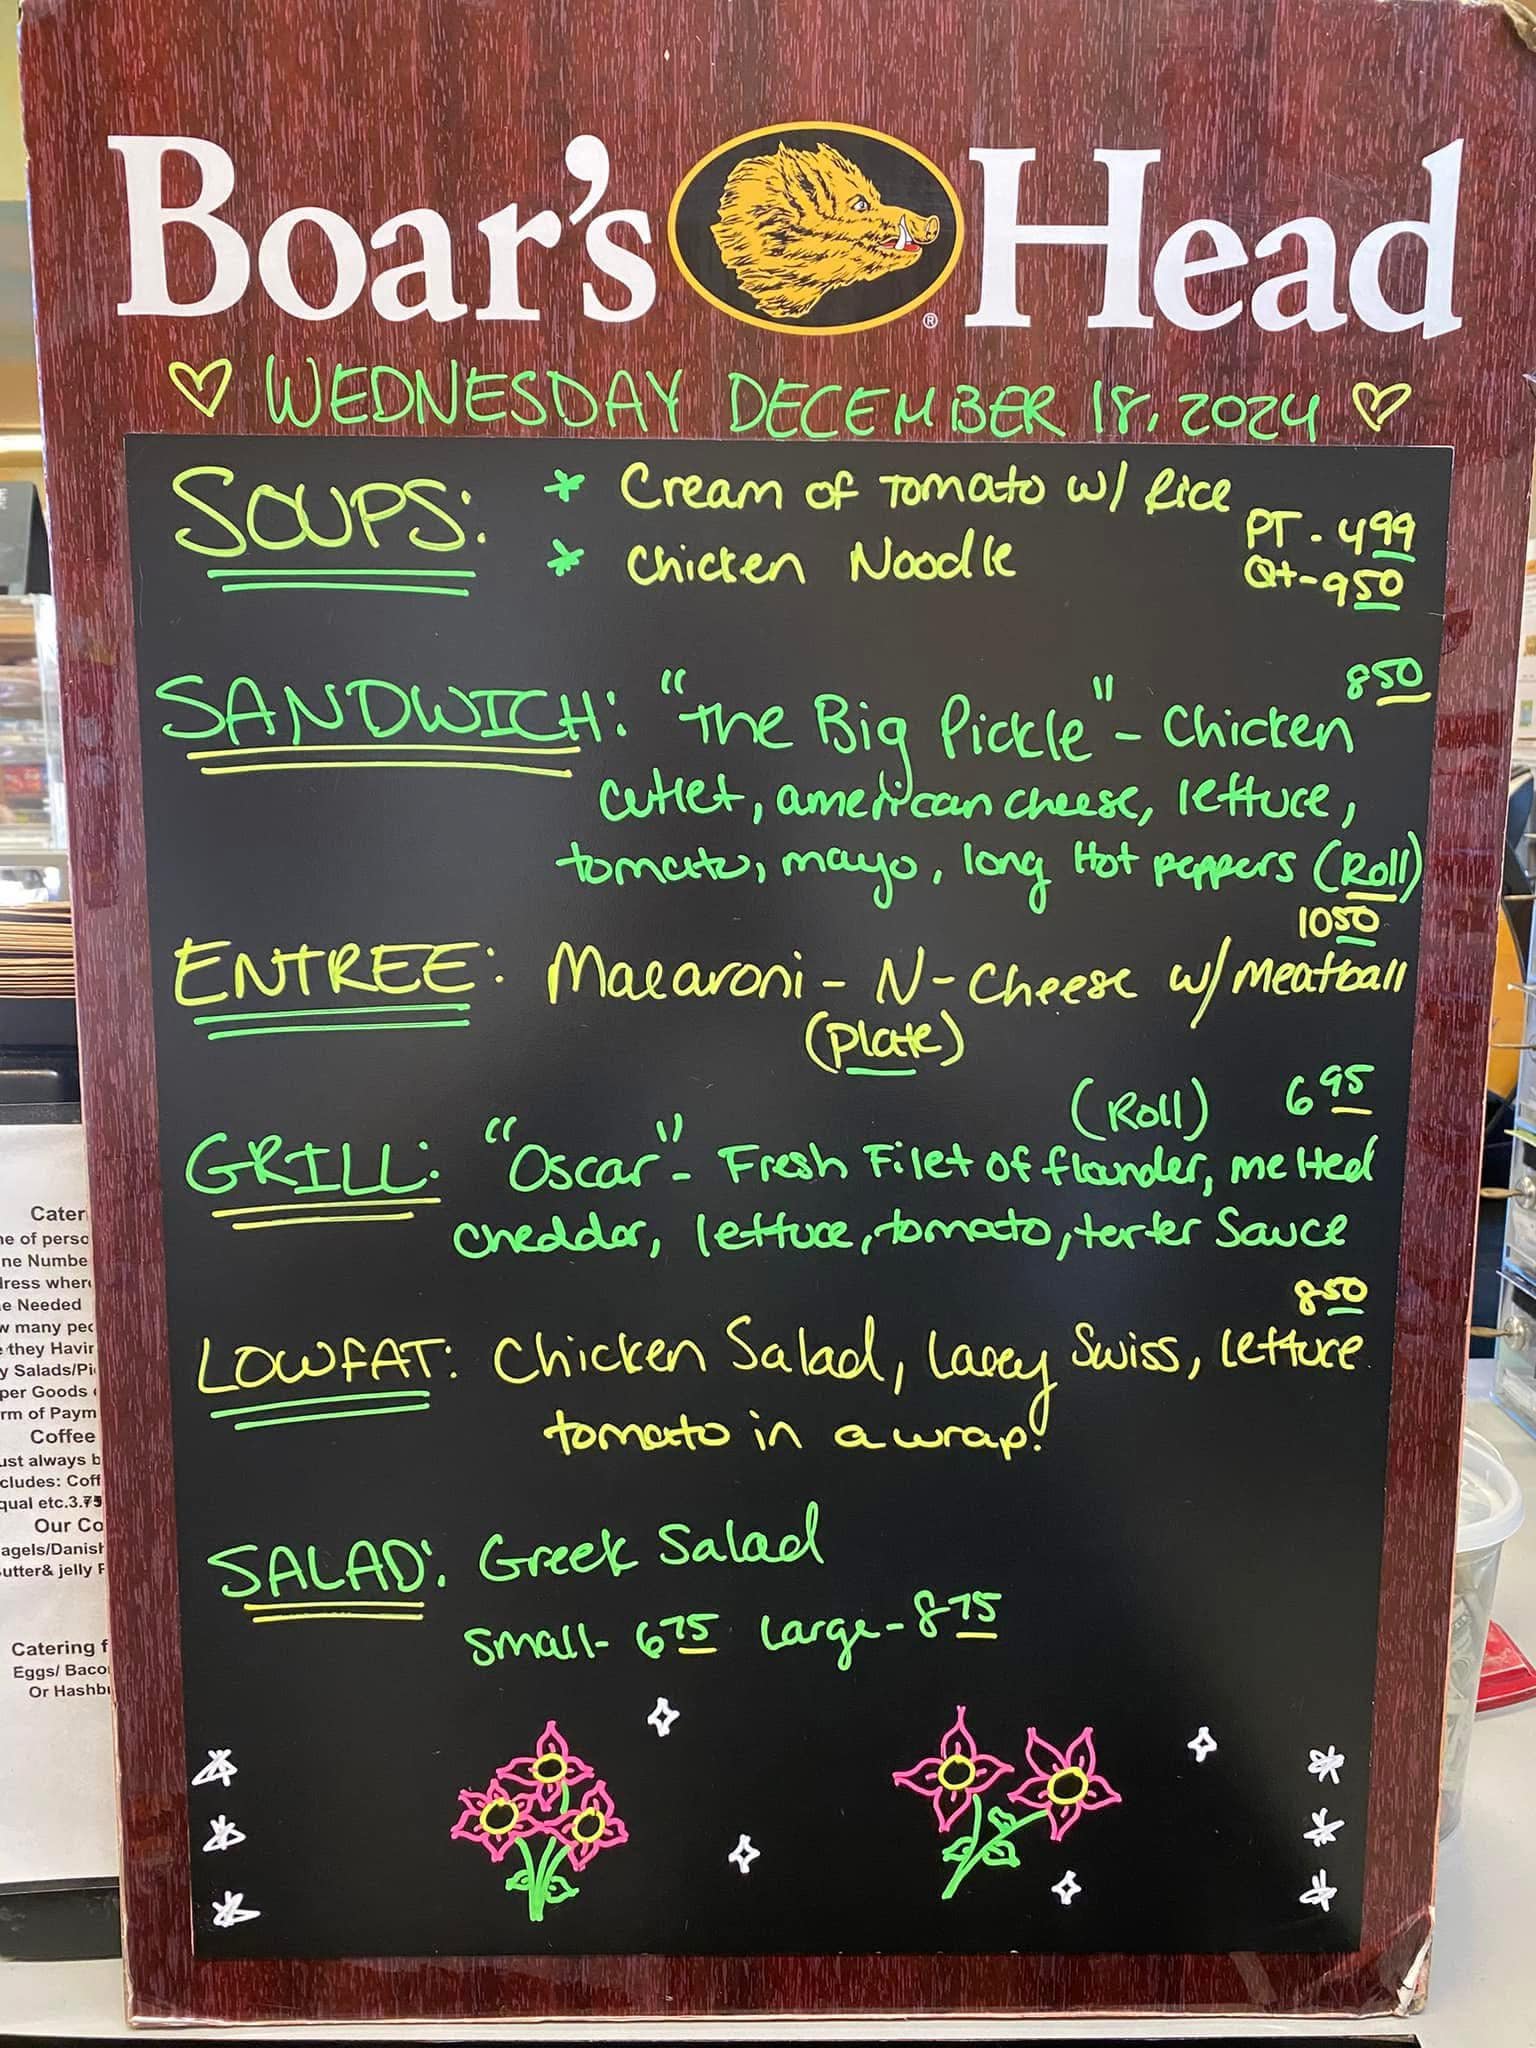 Boar's Head
®
WEDNESDAY DECEMBER 18, 2024
SOUPS: * Cream of Tomato w/ Rice
PT - 4 99
* Chicken Noodle
Qt - 9 50
8 50
SANDWICH: "The Big Pickle" - Chicken
cutlet, american cheese, lettuce,
tomato, mayo, long Hot peppers (Roll)
10 50
ENTREE: Macaroni - N - Cheese w/ Meatball
(plate)
(Roll) 6 95
GRILL: "Oscar" - Fresh Filet of flounder, melted
cheddar, lettuce, tomato, terter Sauce
8 50
LOWFAT: Chicken Salad, Lacey Swiss, lettuce
tomato in a wrap.
SALAD: Greek Salad
Small - 6 75 Large - 8 75
Cater
ne of perso
ne Numbe
dress wher
e Needed
w many pe
they Havin
y Salads/Pi
per Goods
rm of Paym
Coffee
ust always b
cludes: Coff
qual etc.3.75
Our Co
agels/Danish
utter& jelly P
Catering f
Eggs/ Baco
Or Hashb